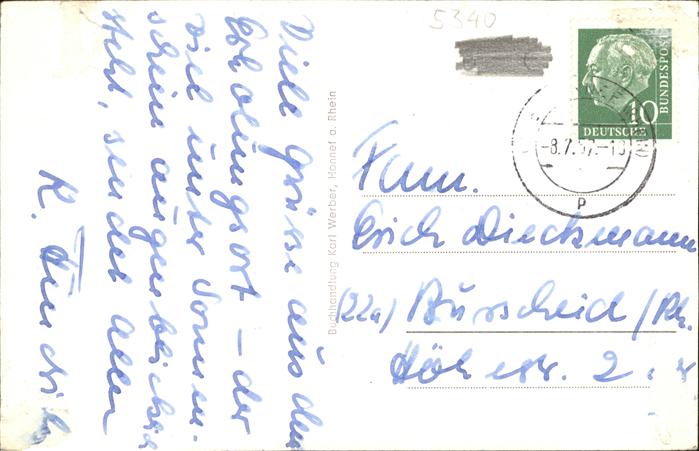 5340
Viele Grüsse aus dem
Erholungsort – der
viel unter Sonnen-
schein augenblicklich
steht, sendet allen
K.
Buchhandlung Karl Werber, Honnef a. Rhein
10
DEUTSCHE
BUNDESPOST
-8.7.57.-18
P
Fam.
Erich Dieckmann
(22a) Burscheid/Rh.
Höhestr. 2.